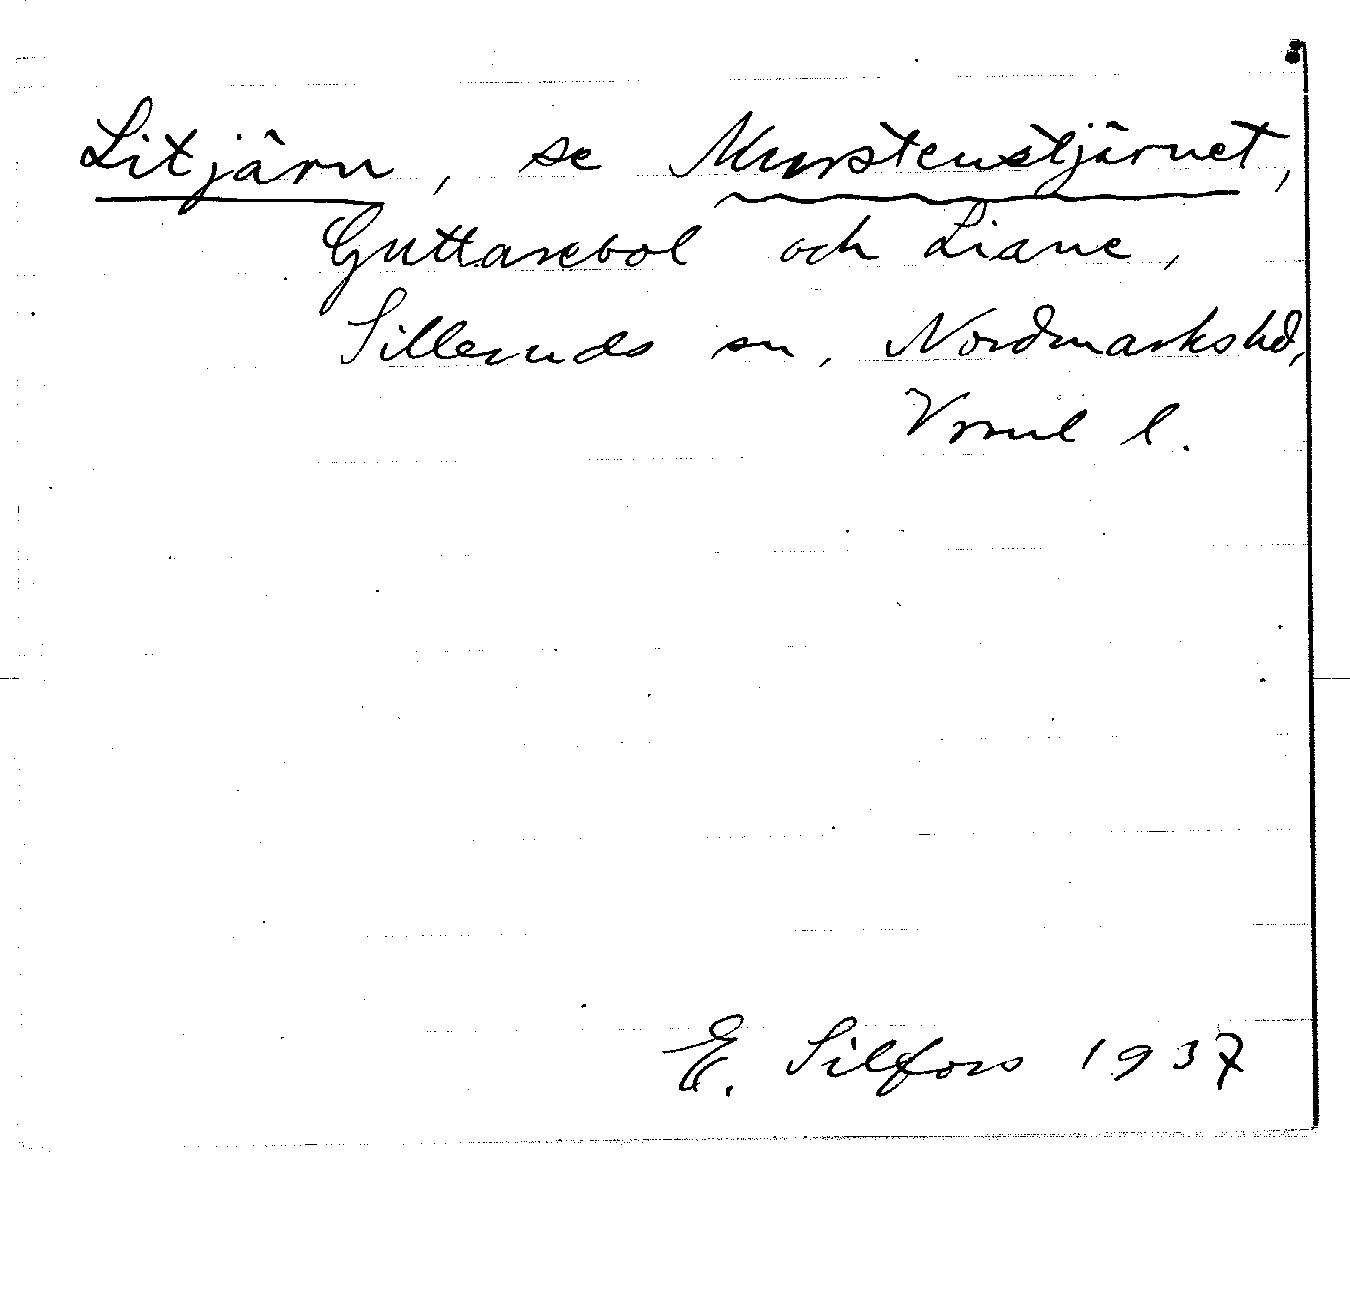 Litjärn, se Murstenstjärnet,
Guttarebol och Liane,
Silleruds sn, Nordmarks hd,
Vrml l.
E. Silfors 1937